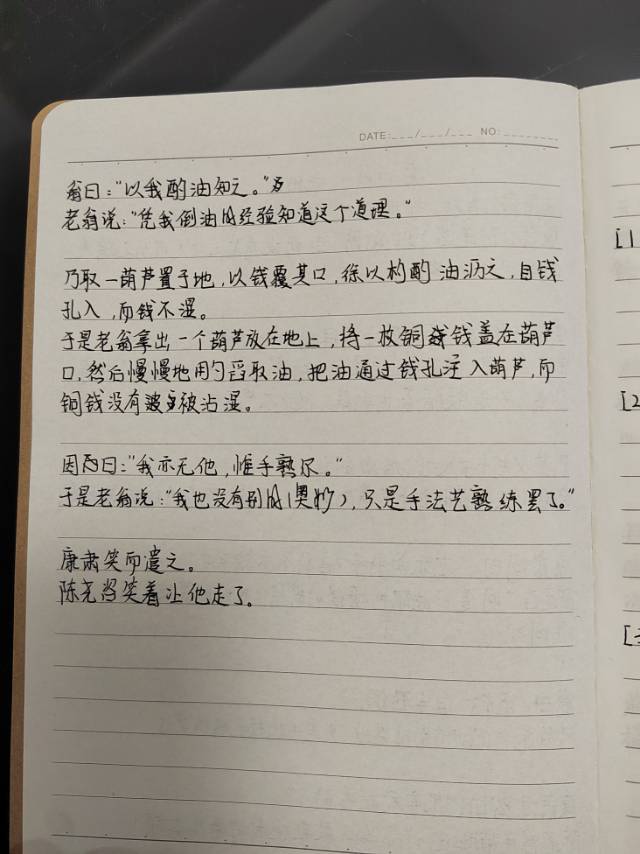 DATE:___/___/___ NO:________
翁曰：“以我酌油知之。”
老翁说：“凭我倒油的经验知道这个道理。”
乃取一葫芦置于地，以钱覆其口，徐以杓酌油沥之，自钱
孔入，而钱不湿。
于是老翁拿出一个葫芦放在地上，将一枚铜钱盖在葫芦
口，然后慢慢地用勺舀取油，把油通过钱孔注入葫芦，而
铜钱没有被沾湿。
因曰：“我亦无他，惟手熟尔。”
于是老翁说：“我也没有别的（奥妙），只是手法艺熟练罢了。”
康肃笑而遣之。
陈尧咨笑着让他走了。
[1
[2